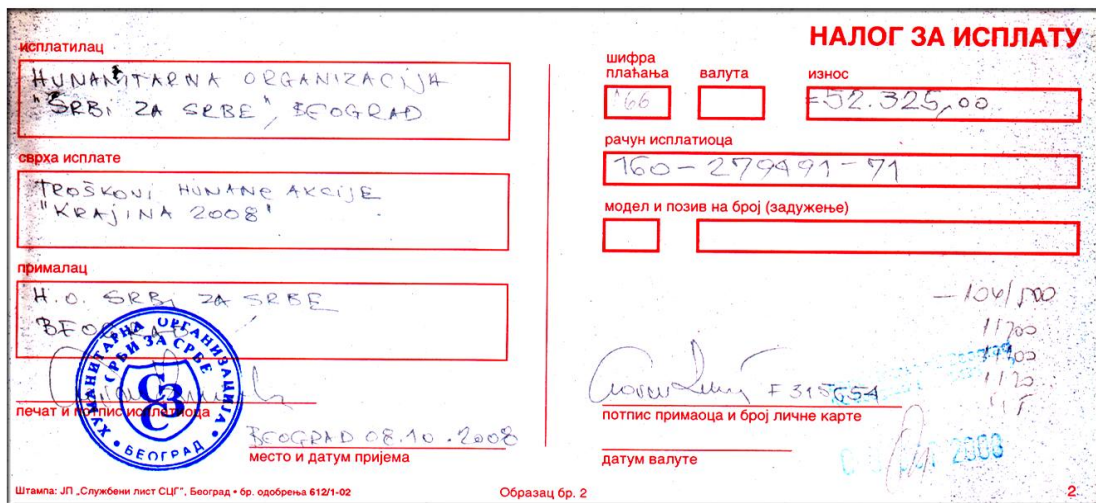 НАЛОГ ЗА ИСПЛАТУ
исплатилац
HUNANITARNA ORGANIZACIJA
"SRBi ZA SRBE", BEOGRAD
сврха исплате
TROŠKOVI HUNANE AKCIJE
"KRAJINA 2008"
прималац
H.O. SRBi ZA SRBE
BEOGRAD
ХУМАНИТАРНА ОРГАНИЗАЦИЈА
СРБИ ЗА СРБЕ
С З С
БЕОГРАД
печат и потпис исплатиоца
BEOGRAD 08.10.2008
место и датум пријема
шифра плаћања
валута
износ
166
=52.325,00
рачун исплатиоца
160-279491-71
модел и позив на број (задужење)
потпис примаоца и број личне карте
датум валуте
2008
Штампа: ЈП „Службени лист СЦГ", Београд • бр. одобрења 612/1-02
Образац бр. 2
2